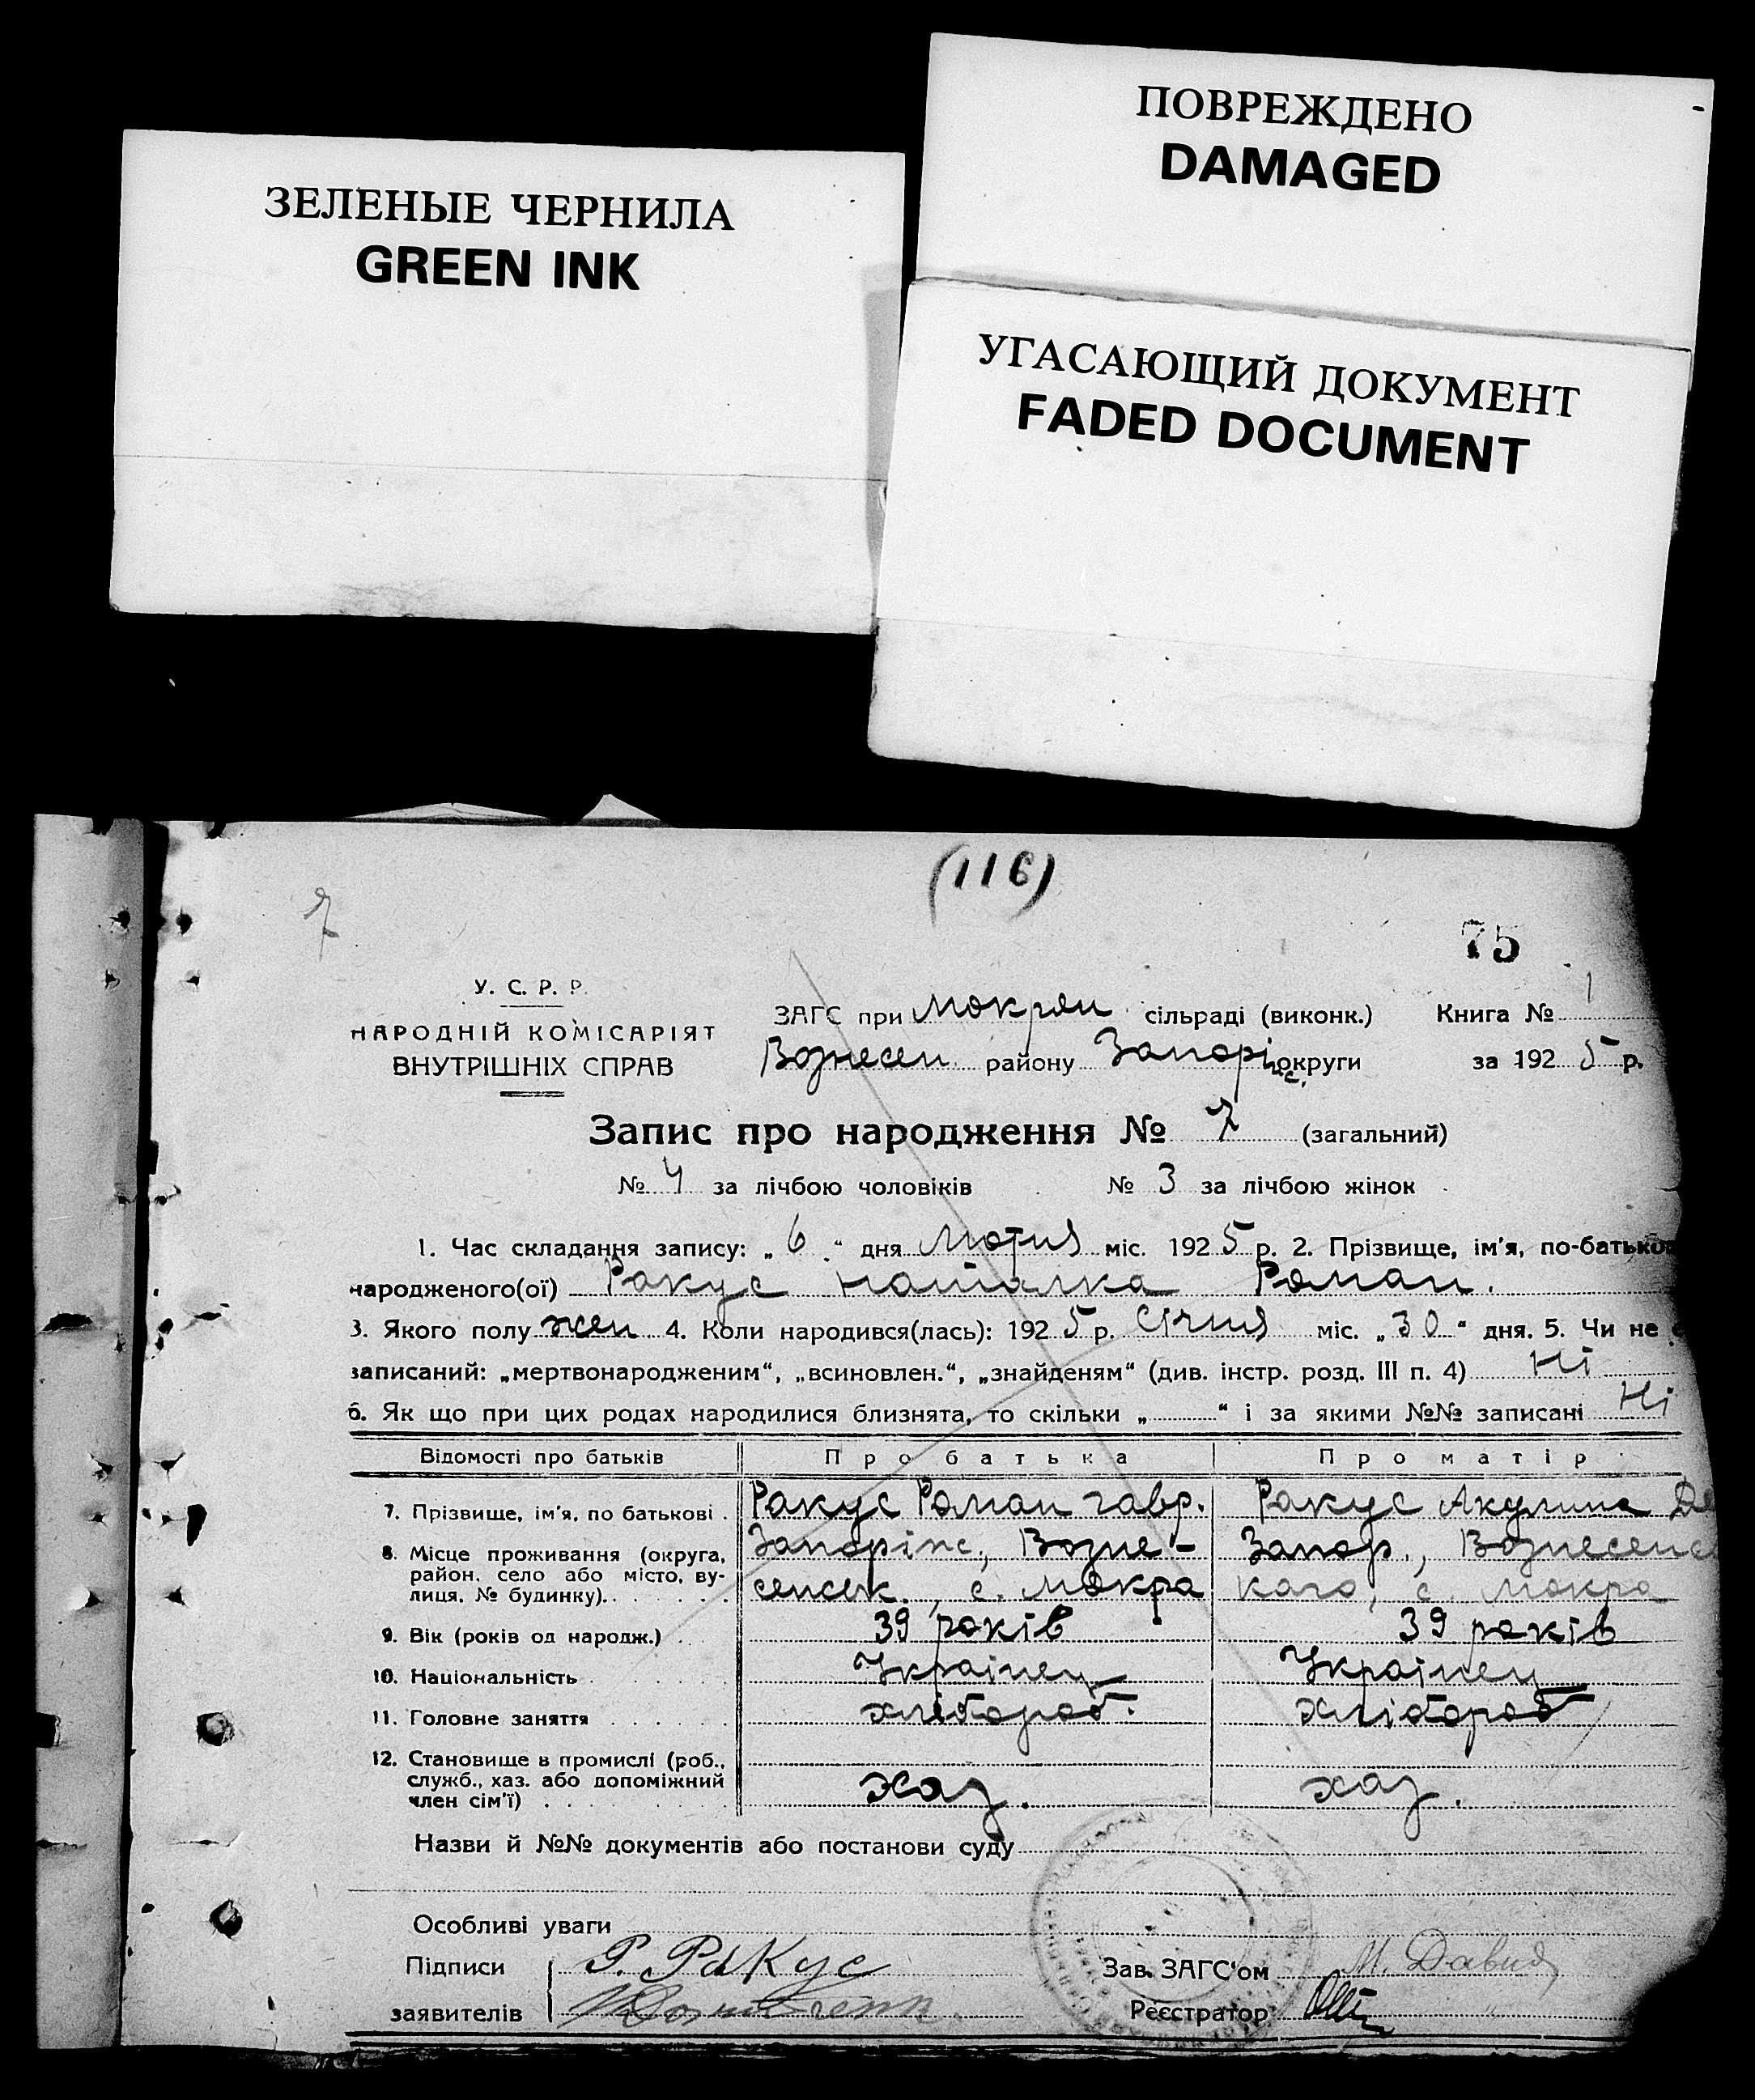 ЗЕЛЕНЫЕ ЧЕРНИЛА
GREEN INK
ПОВРЕЖДЕНО
DAMAGED
УГАСАЮЩИЙ ДОКУМЕНТ
FADED DOCUMENT
(116)
7
75
У. С. Р. Р.
НАРОДНІЙ КОМІСАРІЯТ
ВНУТРІШНІХ СПРАВ
ЗАГС при Мокрян сільраді (виконк.) Книга № 1
Вознесен району Запоріпс. округи за 1925 р.
Запис про народження № 7 (загальний)
№ 4 за лічбою чоловіків № 3 за лічбою жінок
1. Час складання запису: „6“ дня Лютня міс. 1925 р. 2. Прізвище, ім'я, по-батьков
народженого(ої) Ракус Наталка Роман.
3. Якого полу жен 4. Коли народився(лась): 1925 р. Січня міс. „30“ дня. 5. Чи не
записаний: „мертвонародженим“, „всиновлен.“, „знайденям“ (див. інстр. розд. III п. 4) Ні
6. Як що при цих родах народилися близнята, то скільки „ “ і за якими №№ записані Ні
Відомості про батьків Про батька Про матір
7. Прізвище, ім'я, по батькові Ракус Роман Гавр. Ракус Акулина Де
8. Місце проживання (округа, район, село або місто, вулиця, № будинку) Запоріпс., Возне-
сенськ., с. Мокра
Запор., Вознесенс
каго, с. Мокра
9. Вік (років од народж.) 39 років 39 років
10. Національність Українец Українец
11. Головне заняття хлібороб. хлібороб
12. Становище в промислі (роб.,
служб., хаз. або допоміжний
член сім'ї) хаз. хаз.
Назви й №№ документів або постанови суду
Особливі уваги
Підписи Р. Ракус Зав. ЗАГС'ом М. Давид
заявителів Реєстратор